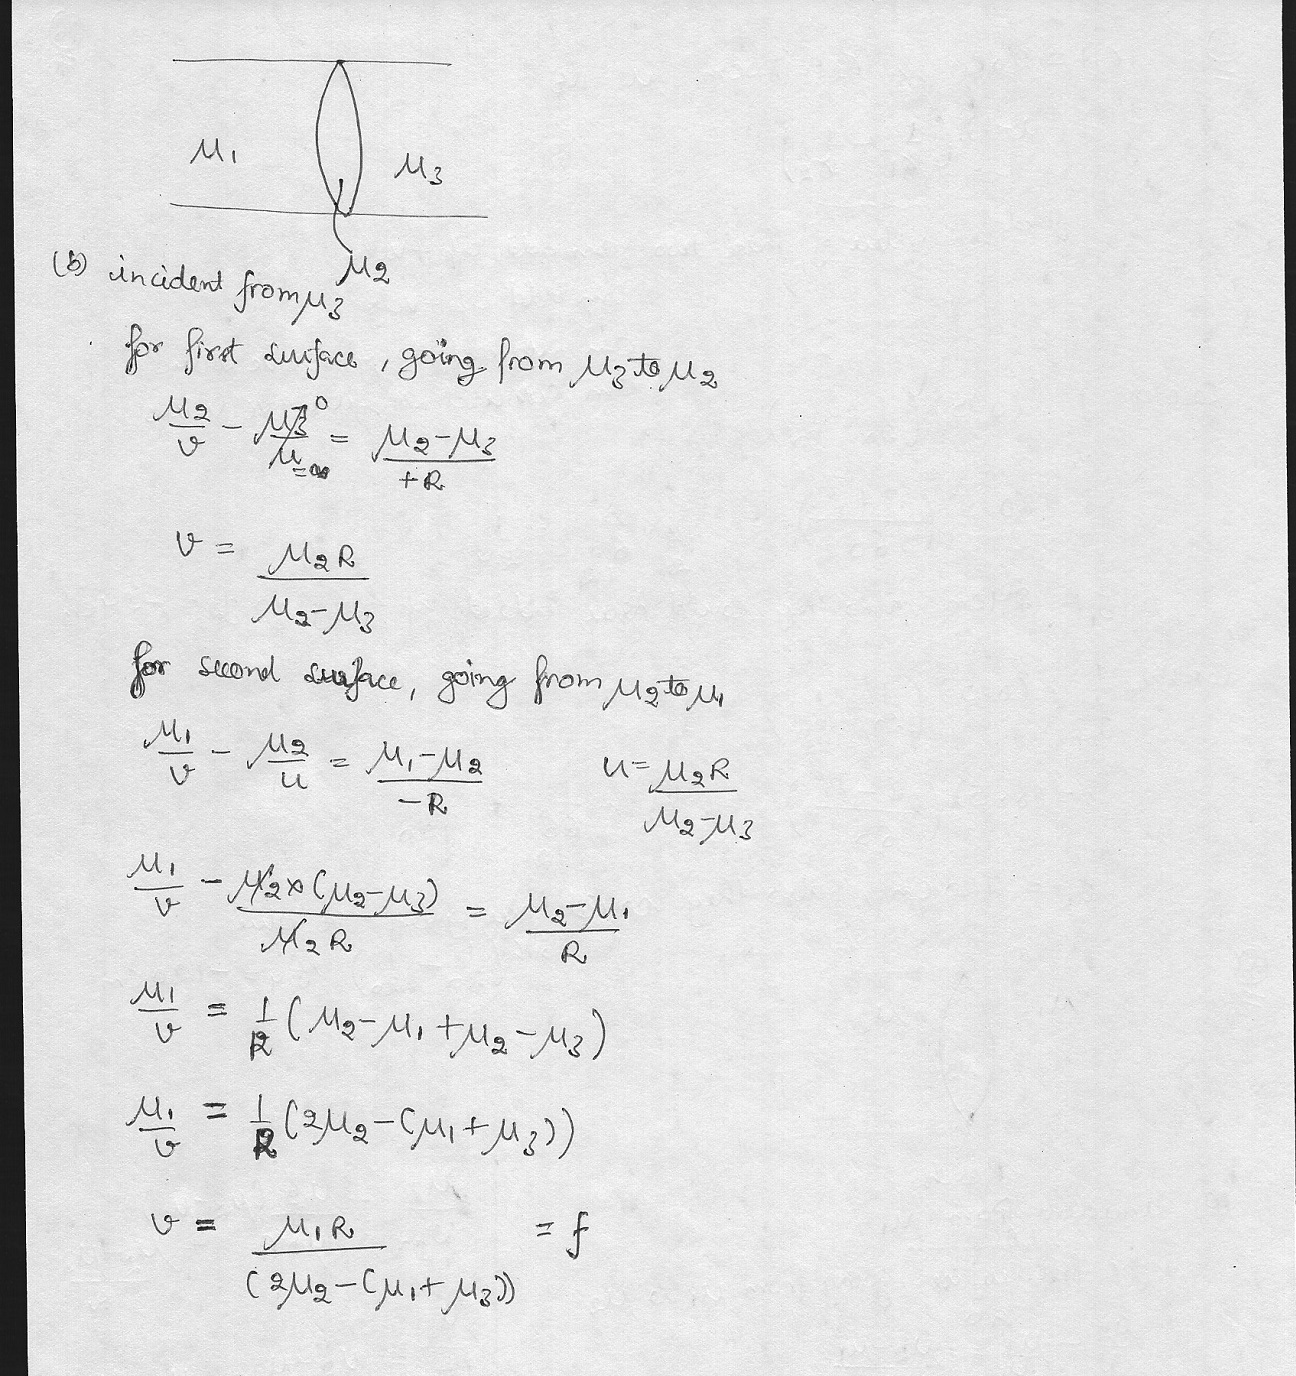 μ1 μ3
μ2
(b) incident from μ3
for first surface, going from μ3 to μ2
μ2/v - μ3/μ=∞ 0 = (μ2-μ3)/+R
v = μ2R/(μ2-μ3)
for second surface, going from μ2 to μ1
μ1/v - μ2/u = (μ1-μ2)/-R u = μ2R/(μ2-μ3)
μ1/v - μ2×(μ2-μ3)/μ2R = (μ2-μ1)/R
μ1/v = 1/R (μ2-μ1+μ2-μ3)
μ1/v = 1/R (2μ2-(μ1+μ3))
v = μ1R/(2μ2-(μ1+μ3)) = f